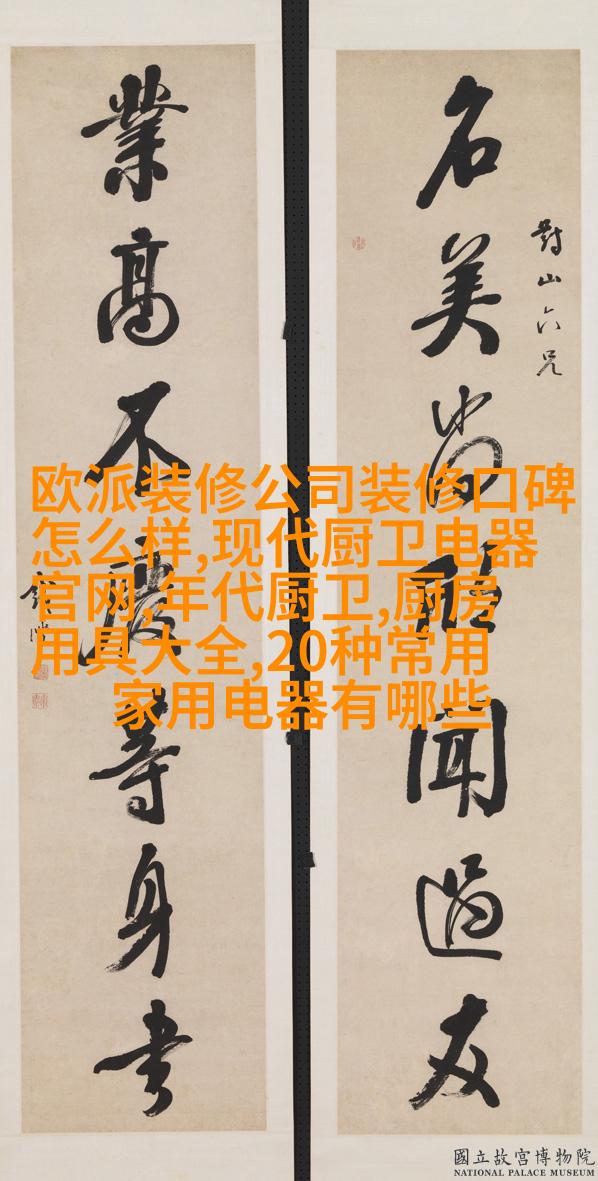 對山六兄
名美尚聞過友
業高不廢等身書
欧派装修公司装修口碑
怎么样,现代厨卫电器
官网,年代厨卫,厨房
用具大全,20种常用
家用电器有哪些
國立故宮博物院
NATIONAL PALACE MUSEUM